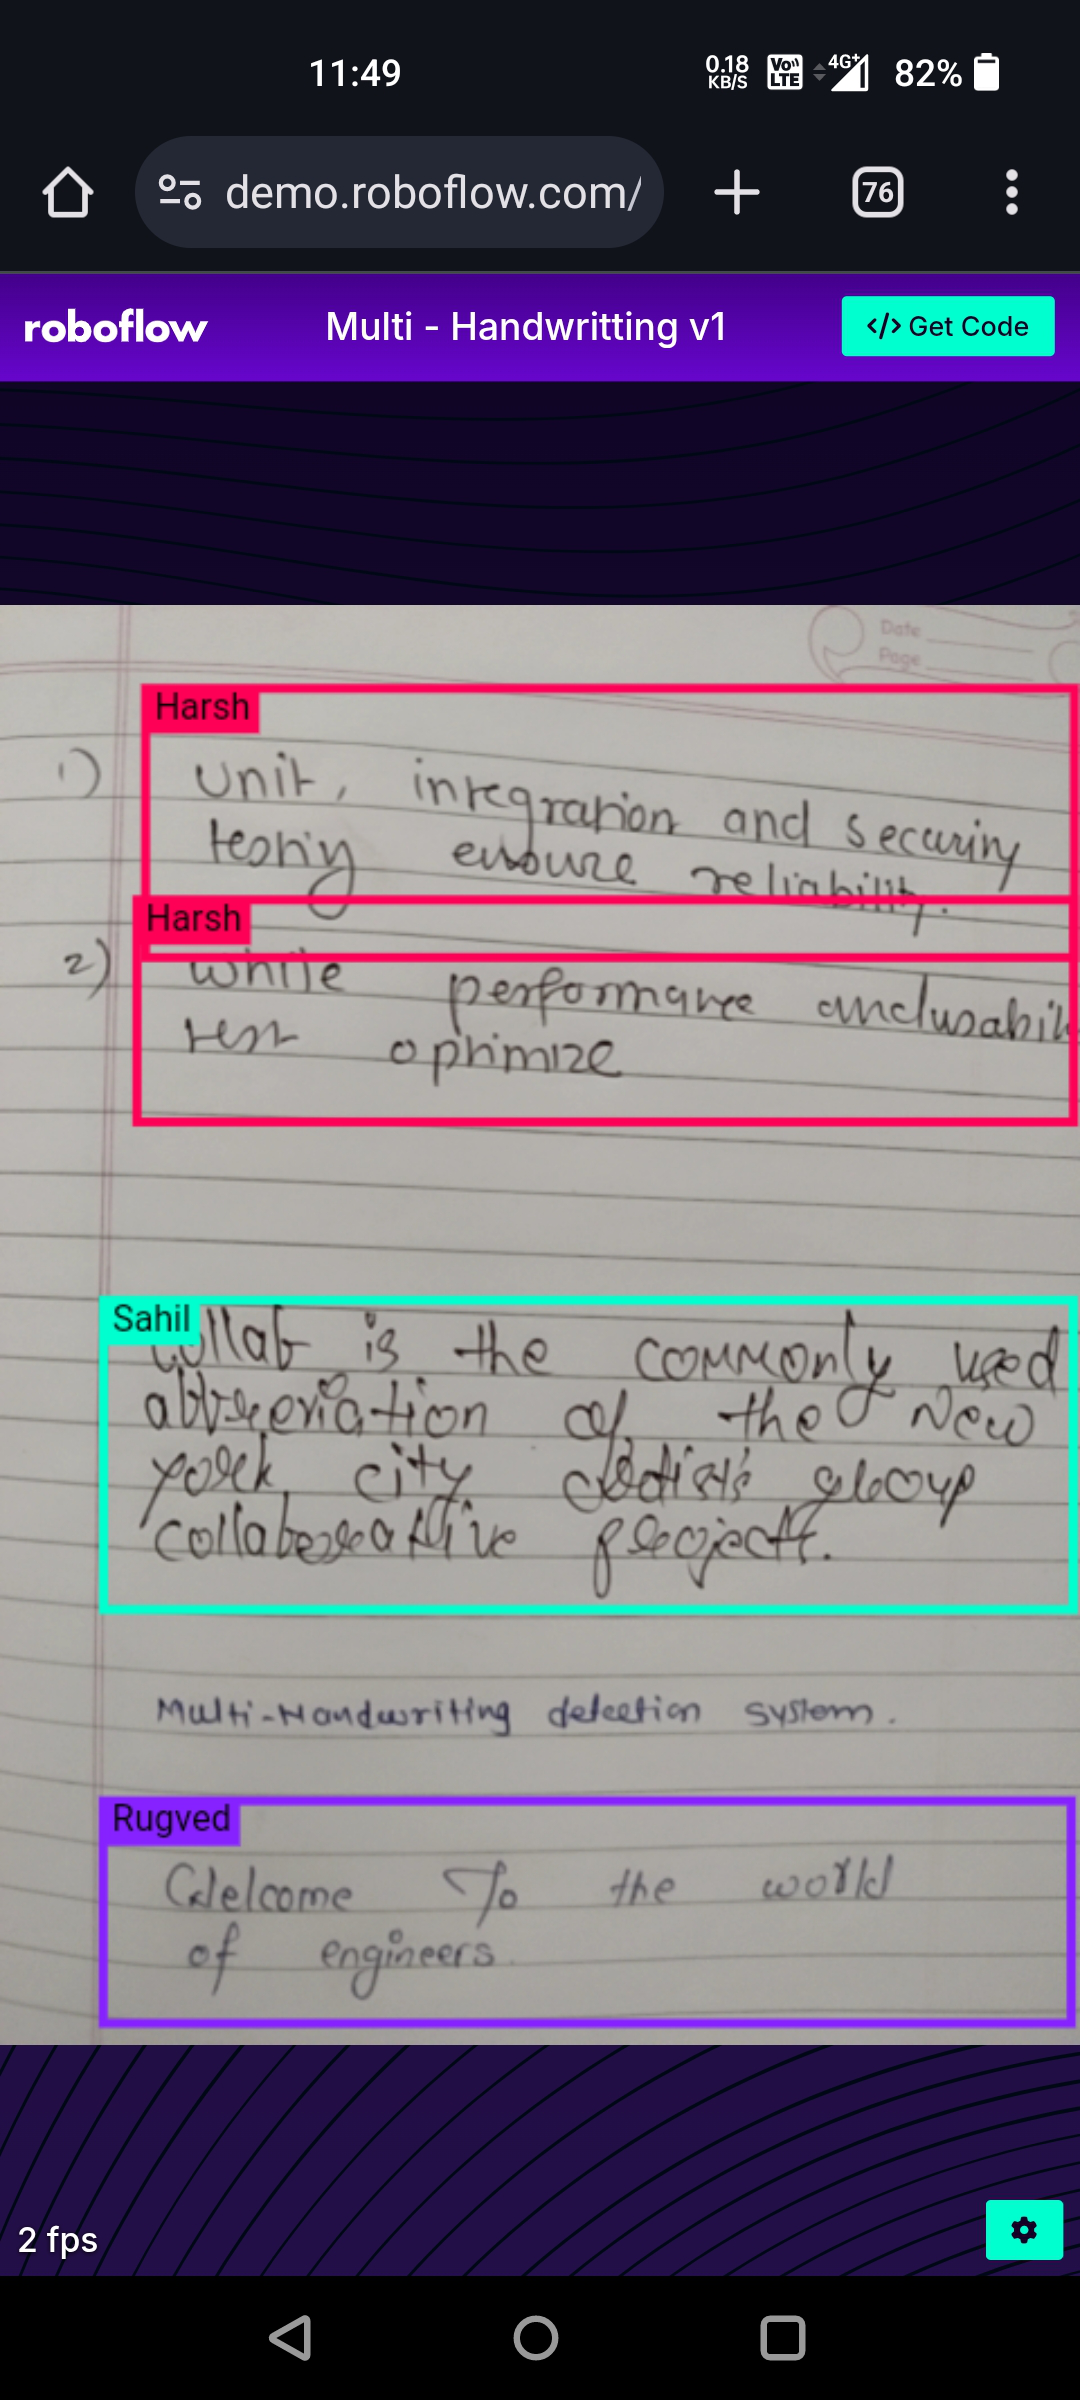 11:49 0.18 KB/S Vo LTE 4G+ 82%
demo.roboflow.com/ 76
roboflow Multi - Handwritting v1 </> Get Code
Date
Page
Harsh
1) Unit, integration and security
testing ensure reliability.
Harsh
2) while performance and usabili
test optimize
Sahil
Collab is the commonly used
abbreviation of the New
york city
collaborative project.
Multi-Handwriting detection system.
Rugved
Welcome To the world
of engineers.
2 fps